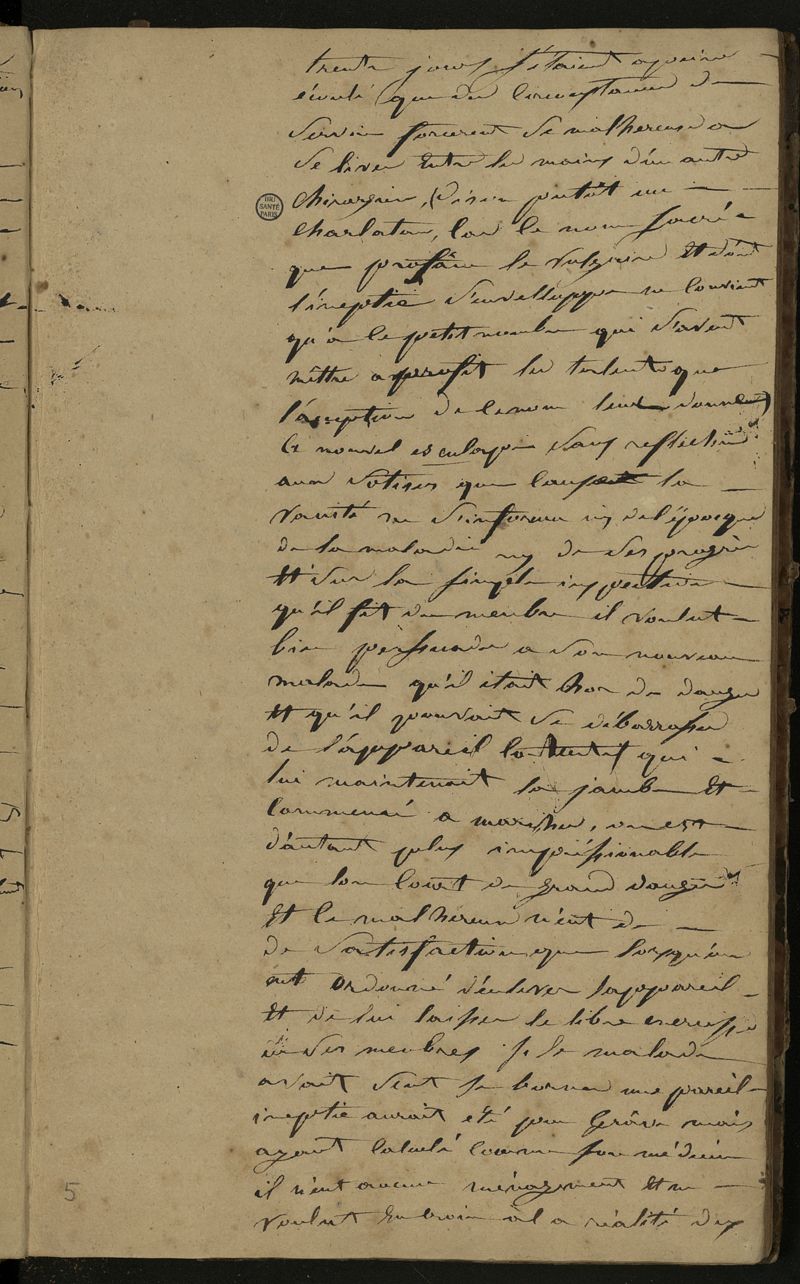 trente jours s'étaient apeine
écoulé que des circonstances de
Service forcerent ce malhereux a
se livrer entre les mains d'un autre
Chirurgien, (disons putôt un
charlatan, car le nom sacré
que profâne le vulgaire Et dont
l'ineptie s'envelloppe ne convient
qu'a le petit nombre qui savent
mêttre a profit les talents que
l'acception de ce nom leur donnent)
Ce nouvel esculape sans reflechir
aux sotises que cause la
vanité ne s'informa ny de l'époque
de la maladie ny de ses progrès
Et sur la simple inspection
qu'il fit du menbre il voulut
bien persuader a son nouveau
malade qu'il était hor de danger
Et qu'il pouvait se débarrasser
de l'appareil qui
lui maintenait la jambe Et
commencé a marcher, on est
d'autant plus impréssionable
que l'on court de grand dangers
Et le malhereux n'eut de
de satisfaction que lorsqu'on
eut ordonné d'enlever l'appareil
Et de lui laisser le libre exercisse
de ses menbres si le malade
avait sçut se borner une pareil
ineptie aurait eté peu grâve mais
ayant calculé comme son médecin
il n'eut aucun ménagement Et ne
voulut En croire a la réalité des
BIU
SANTÉ
PARIS
5